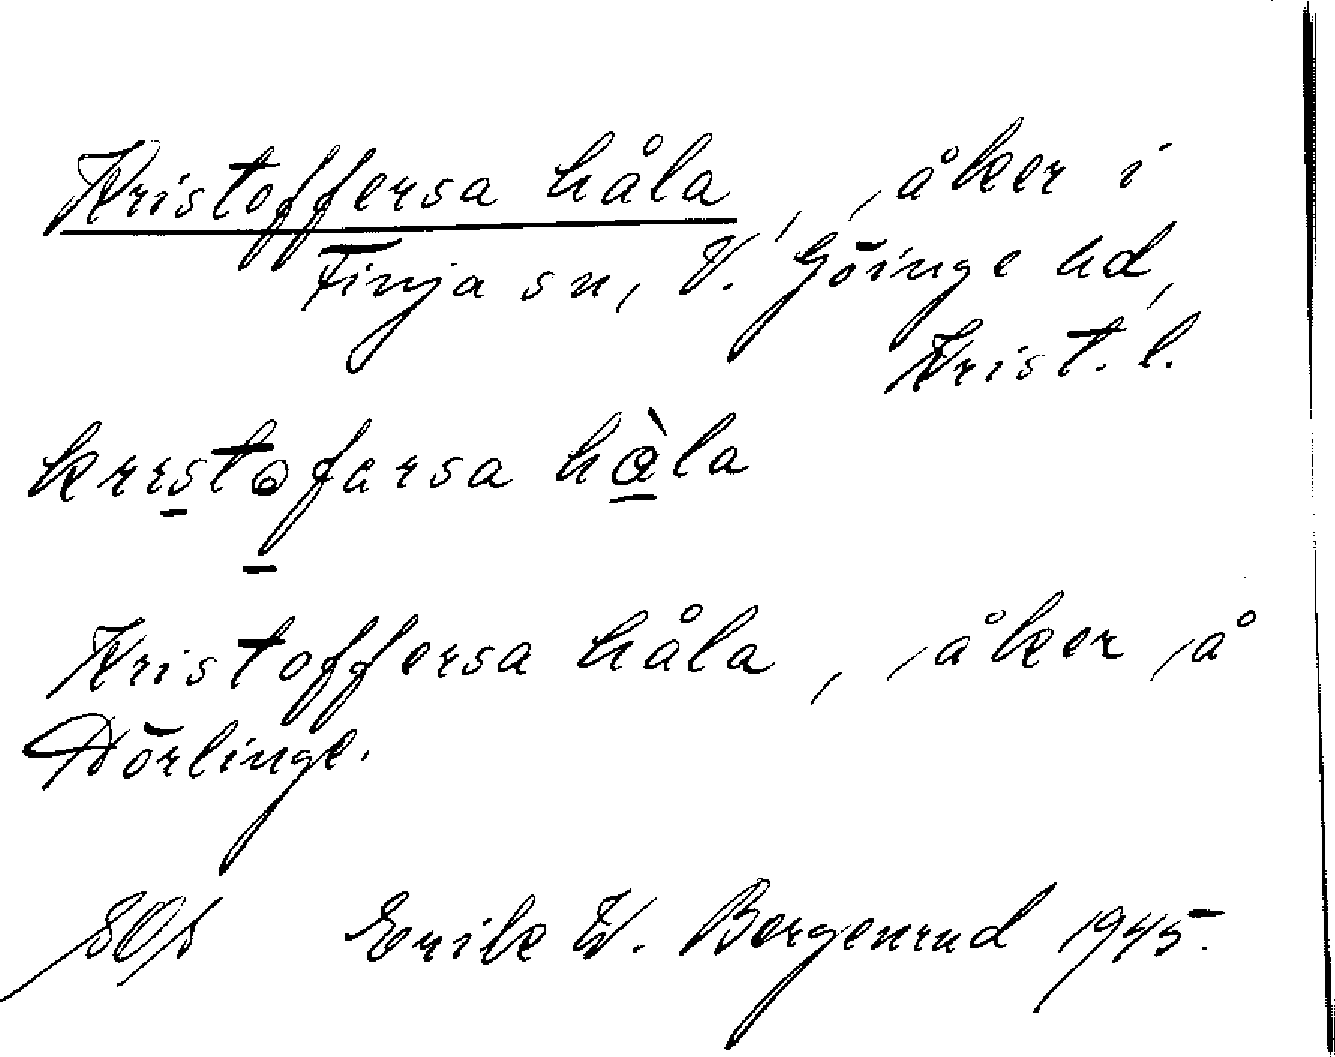 Kristoffersa håla, åker i
Finja sn, V. Göinge hd,
Krist. l.
krıstofarsa hàla
Kristoffersa håla, åker å
Dörlinge.
Erik W. Bergenrud 1945.